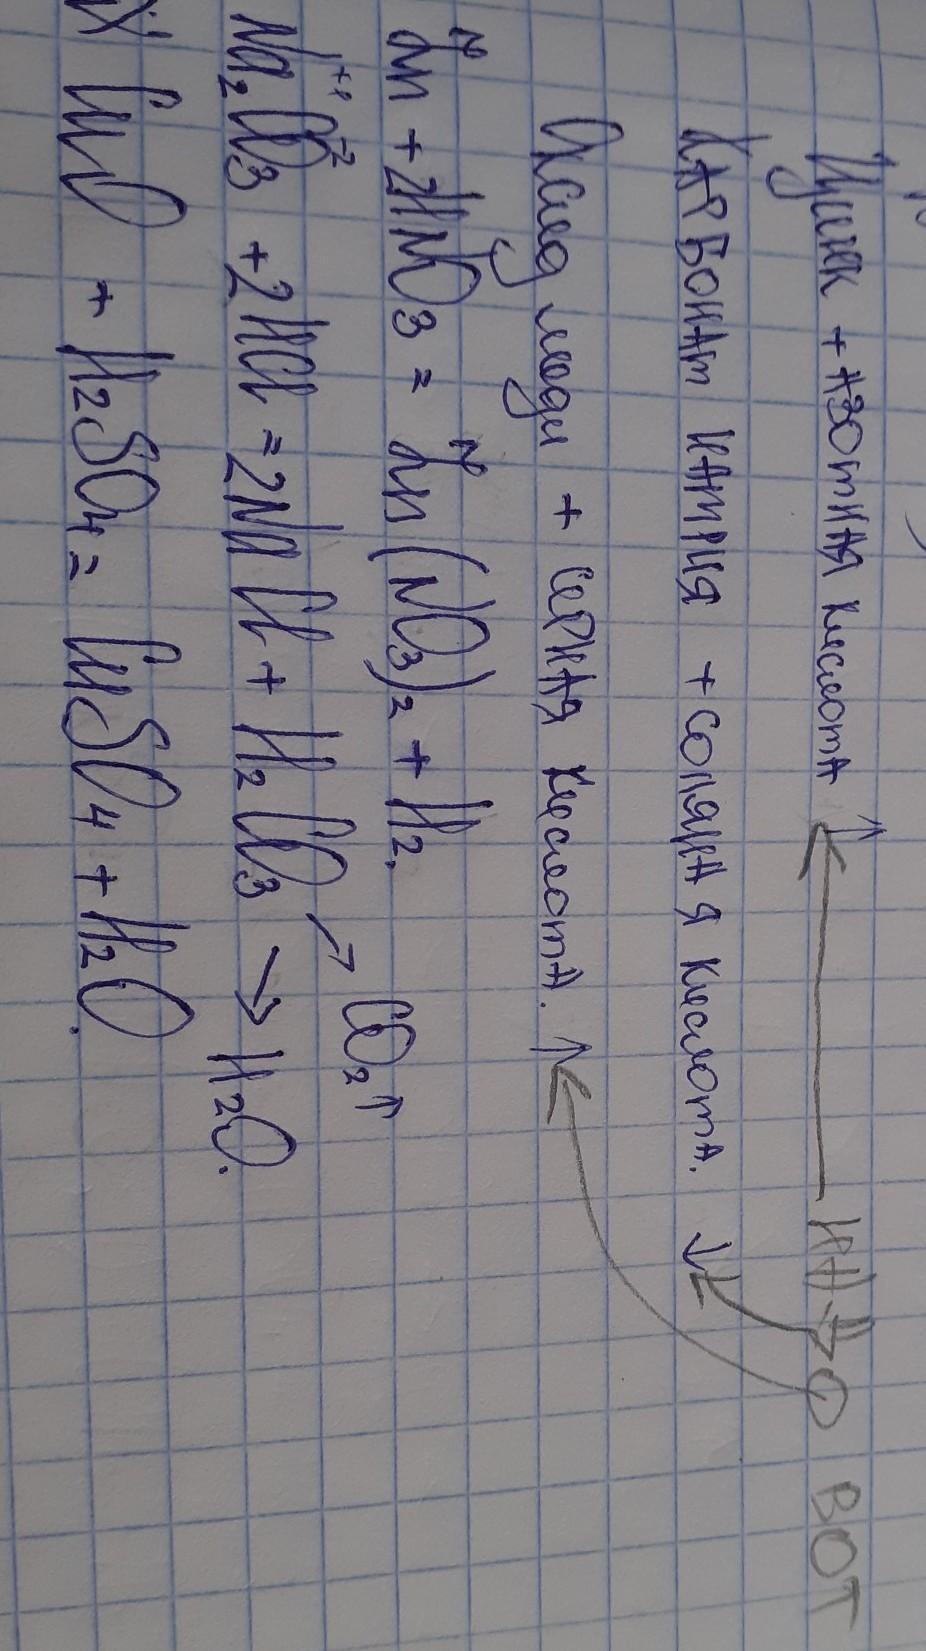 Цинк + азотная кислота ↑ надо вот
Карбонат натрия + соляная кислота. ↓
Оксид меди + серная кислота. ↑
Zn + 2HNO3 = Zn(NO3)2 + H2.
Na2CO3 + 2HCl = 2NaCl + H2CO3 → CO2↑ → H2O.
CuO + H2SO4 = CuSO4 + H2O.